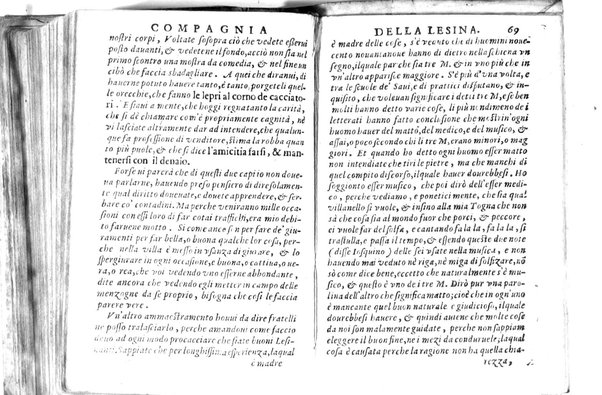 COMPAGNIA
nostri corpi, Voltate sosopra ciò che vedete esserui
posto dauanti, & vedetene il fondo, acciò non sia nel
primo scontro una mostra da comedia, & nel fine un
cibò che faccia sbadagliare. A quei che diranui, di
hauerne potuto hauer tanto, e tanto, porgeteli quel
le orecchie, che fanno le lepri al corno de cacciato
ri. E stiani a mente, che hoggi regnatanto la carità,
che si dè chiamare com'è propriamente cagnità, nè
vi lasciate altramente dar ad intendere, che qualun-
que fa professione di venditore, stima la robba quan
to più puole, & che si dice l'amicitia farsi, & man-
tenersi con il denaio.
Forse ui parerà che di questi due capi io non doue
na parlarne, hauendo preso pensiero di dire solamen-
te qual dritto douenate, e douete apprendere, & ser-
bare co' contadini. Ma perche veniranno mille occa
sioni con essi loro di far cotai traffichi, era mio debi-
to faruene motto. Sì come anco se n per fare de' giu-
ramenti per far bella, o buona qual che lor cosa, per-
che nella villa è messo in vsanza di giurare, & lo
spergiurare in ogni occasione, e buona, o cattiua, o ue-
ra, o rea, che voi vedendo vno esserne abbondante,
dite ancora che vedendo egli metter in campo delle
menzogne da se proprio, bisogna che così le faccia
parere vere.
Vn'altro ammaestramento houui da dire fratelli
ne posso tralasciarlo, perche amandoui come faccio
deuo ad ogni modo procacciare che siate buoni Lesi-
nanti. Sappiate che per longhissima esperienza, la qual
è madre
DELLA LESINA. 69
è madre delle cose, s'è veduto che di huomini noue-
cento nouantanoue hanno di dietro nella schiena vn
segno, il quale par che sia tre M. & in vno più che in
vn'altro apparisce maggiore. S'è più d'una volta, e
tra le scuole de' Saui, e di prattici disputato, & in-
quisito, che voleuan significare i detti tre M, e se ben
molti hanno detto varie cose, li più nondimeno de i
letterati han fatto conclusione che mostrin'ogni
huomo hauer del matto, del medico, e del musico, &
assai, o poco secondo chi li tre M, erano minori, o mag
giori. Et quando ho detto ogni huomo esser matto
non intendiate che tiri le pietre, ma che manchi di
quel compito discorso, il quale hauer dourebbesi. Ho
soggionto esser musico, che però dirsi dell'esser medi-
co, perche vediamo, e ponetici mente, che sia qual
villanello si vuole, & insino alla mia Togna che non
sà che cosa sia al mondo fuor che porci, & pecore,
ci vuole far del solfa, e cantando fa la, fa la, fa la, si
trastulla, e passa il tempo, & essendo queste due note
(disse tospuino) delle sei usate nella musica, e non
hauendo mai veduto nè riga, nè miga di solfizare, nō
sò come dire bene, eccetto che naturalmente s'è musi-
co, & questo è vno de i tre M. Dirò pur vna paro-
lina dell'altro che significa matto; cioè che in ogn'uno
è mancante quel buon naturale e giuditio, il quale
dourebbesi hauere, & quindi auuiene che molte cose
da noi son malamente guidate, perche non sappiam
eleggere il buon fine, nè i mezi da condurcule; la qual
cosa è causata perche la ragione non ha quella chia-
rezza,